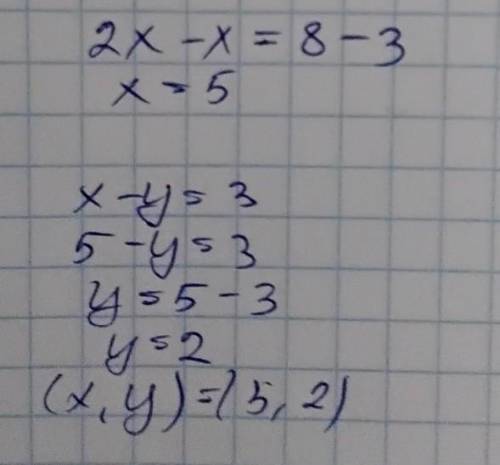 2x - x = 8 - 3
x = 5
x - y = 3
5 - y = 3
y = 5 - 3
y = 2
(x, y) = (5, 2)